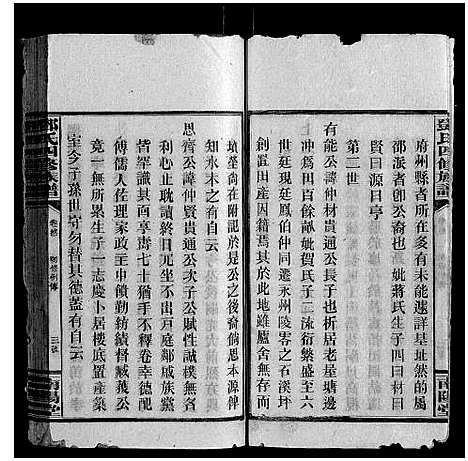 鄧氏四修族譜
府州縣者所在多有未能遽詳是址然的屬
邵派者即公裔也 妣蔣氏生子四曰材曰
賢曰源曰亨
第二世
有能公諱仲材貴通公長子也析居老屋塘邊
沖爲田百餘畝妣賀氏子三流衍繁盛至六
世廷現廷鳳伯仲同遷永州陵零之石溪坪
創置田産因籍焉其於此地雖廬舍無存而
墳塋尚在附記於是公之後裔倘思本源俾
知水木之有自云
思齊公諱仲賢貴通公次子公賦性誠樸無
利心止耽讀終日兀坐不出戸庭鄰戚族黨
皆罕識其面享壽七十猶手不釋卷幸德配
傅儒人佐理家政主中饋勤紡績督臧獲業
竟一無所累生子一志慶卜居樓底置產築
室今子孫世守勿替其德蓋有自云
鄧氏四修族譜
南陽堂